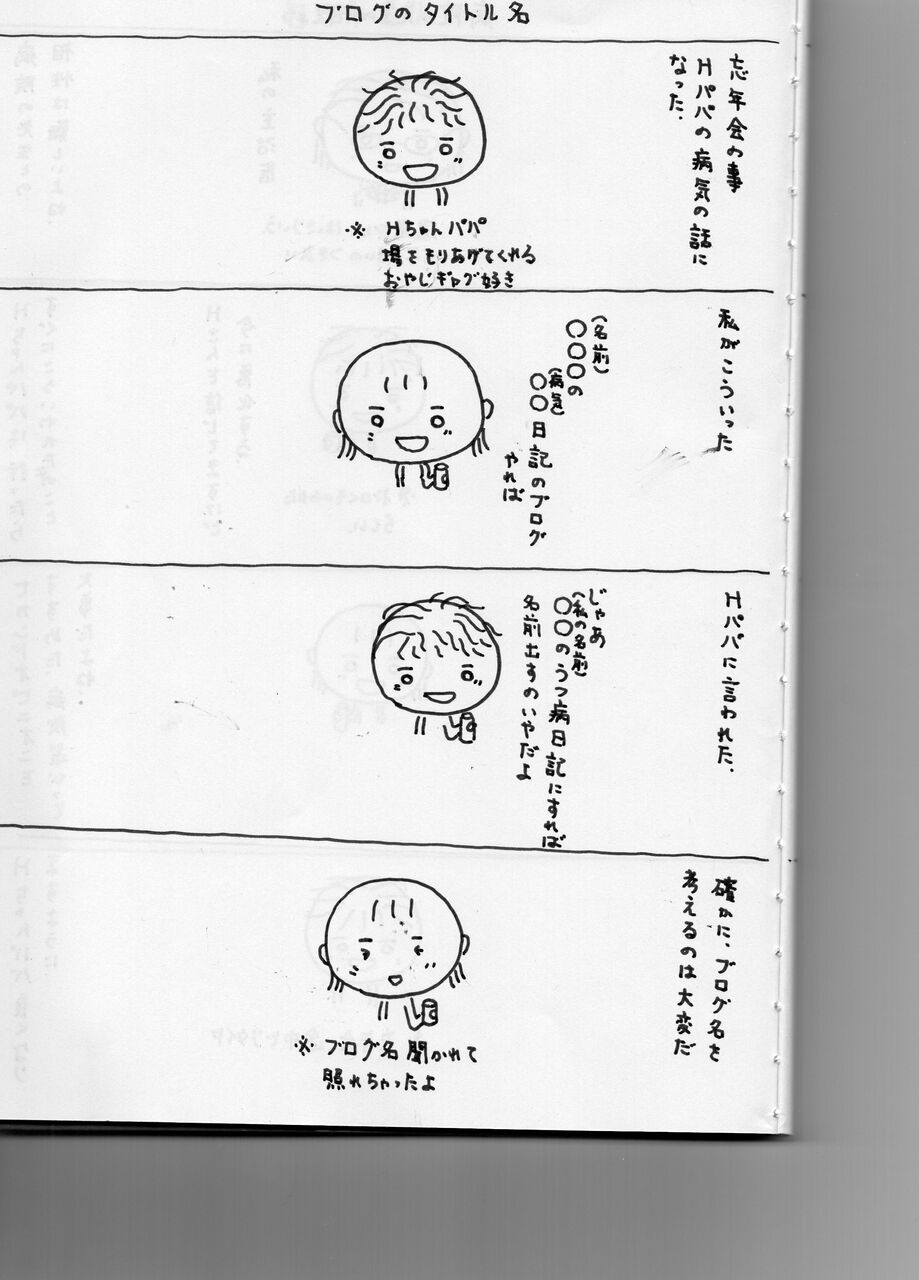 ブログのタイトル名
忘年会の事
Hパパの病気の話に
なった.
※ Hちゃんパパ
場をもりあげてくれる
おやじギャグ好き
私がこういった
(名前)
○○○の
(病気)
○○日記のブログ
やれば
Hパパに言われた.
じゃあ
(私の名前)
○○のうつ病日記にすれば
名前出すのいやだよ
確かに、ブログ名を
考えるのは大変だ
※ ブログ名聞かれて
照れちゃったよ